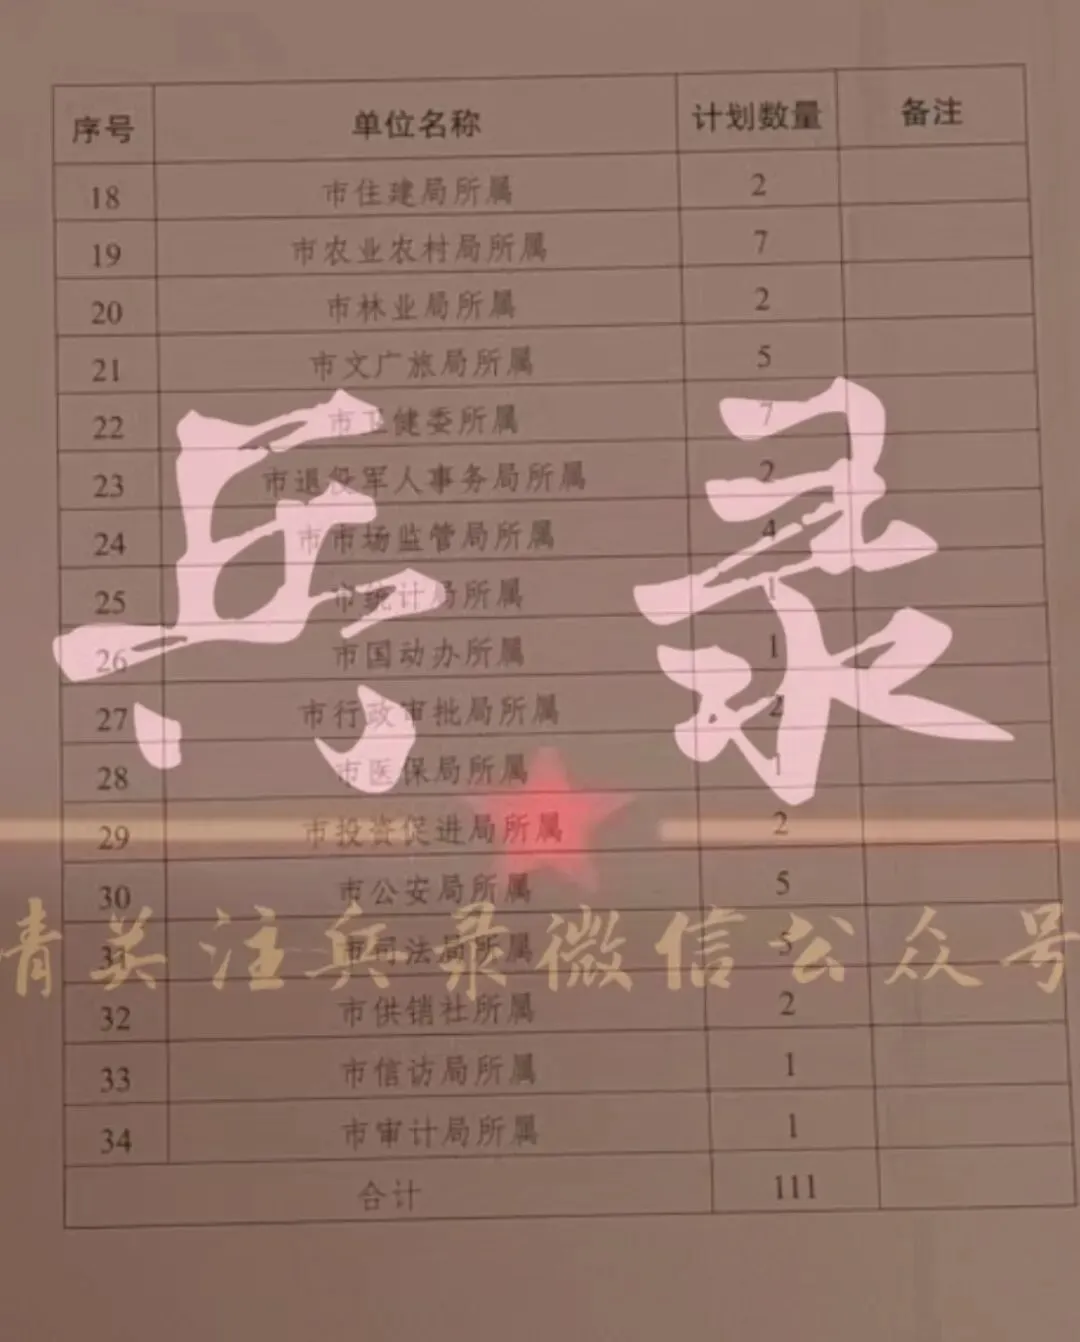 序号 单位名称 计划数量 备注
18 市住建局所属 2
19 市农业农村局所属 7
20 市林业局所属 2
21 市文广旅局所属 5
22 市卫健委所属 7
23 市退役军人事务局所属 2
24 市市场监管局所属 4
25 市统计局所属 1
26 市国动办所属 1
27 市行政审批局所属 2
28 市医保局所属 1
29 市投资促进局所属 2
30 市公安局所属 5
31 市司法局所属 5
32 市供销社所属 2
33 市信访局所属 1
34 市审计局所属 1
合计 111
兵录
请关注兵录微信公众号